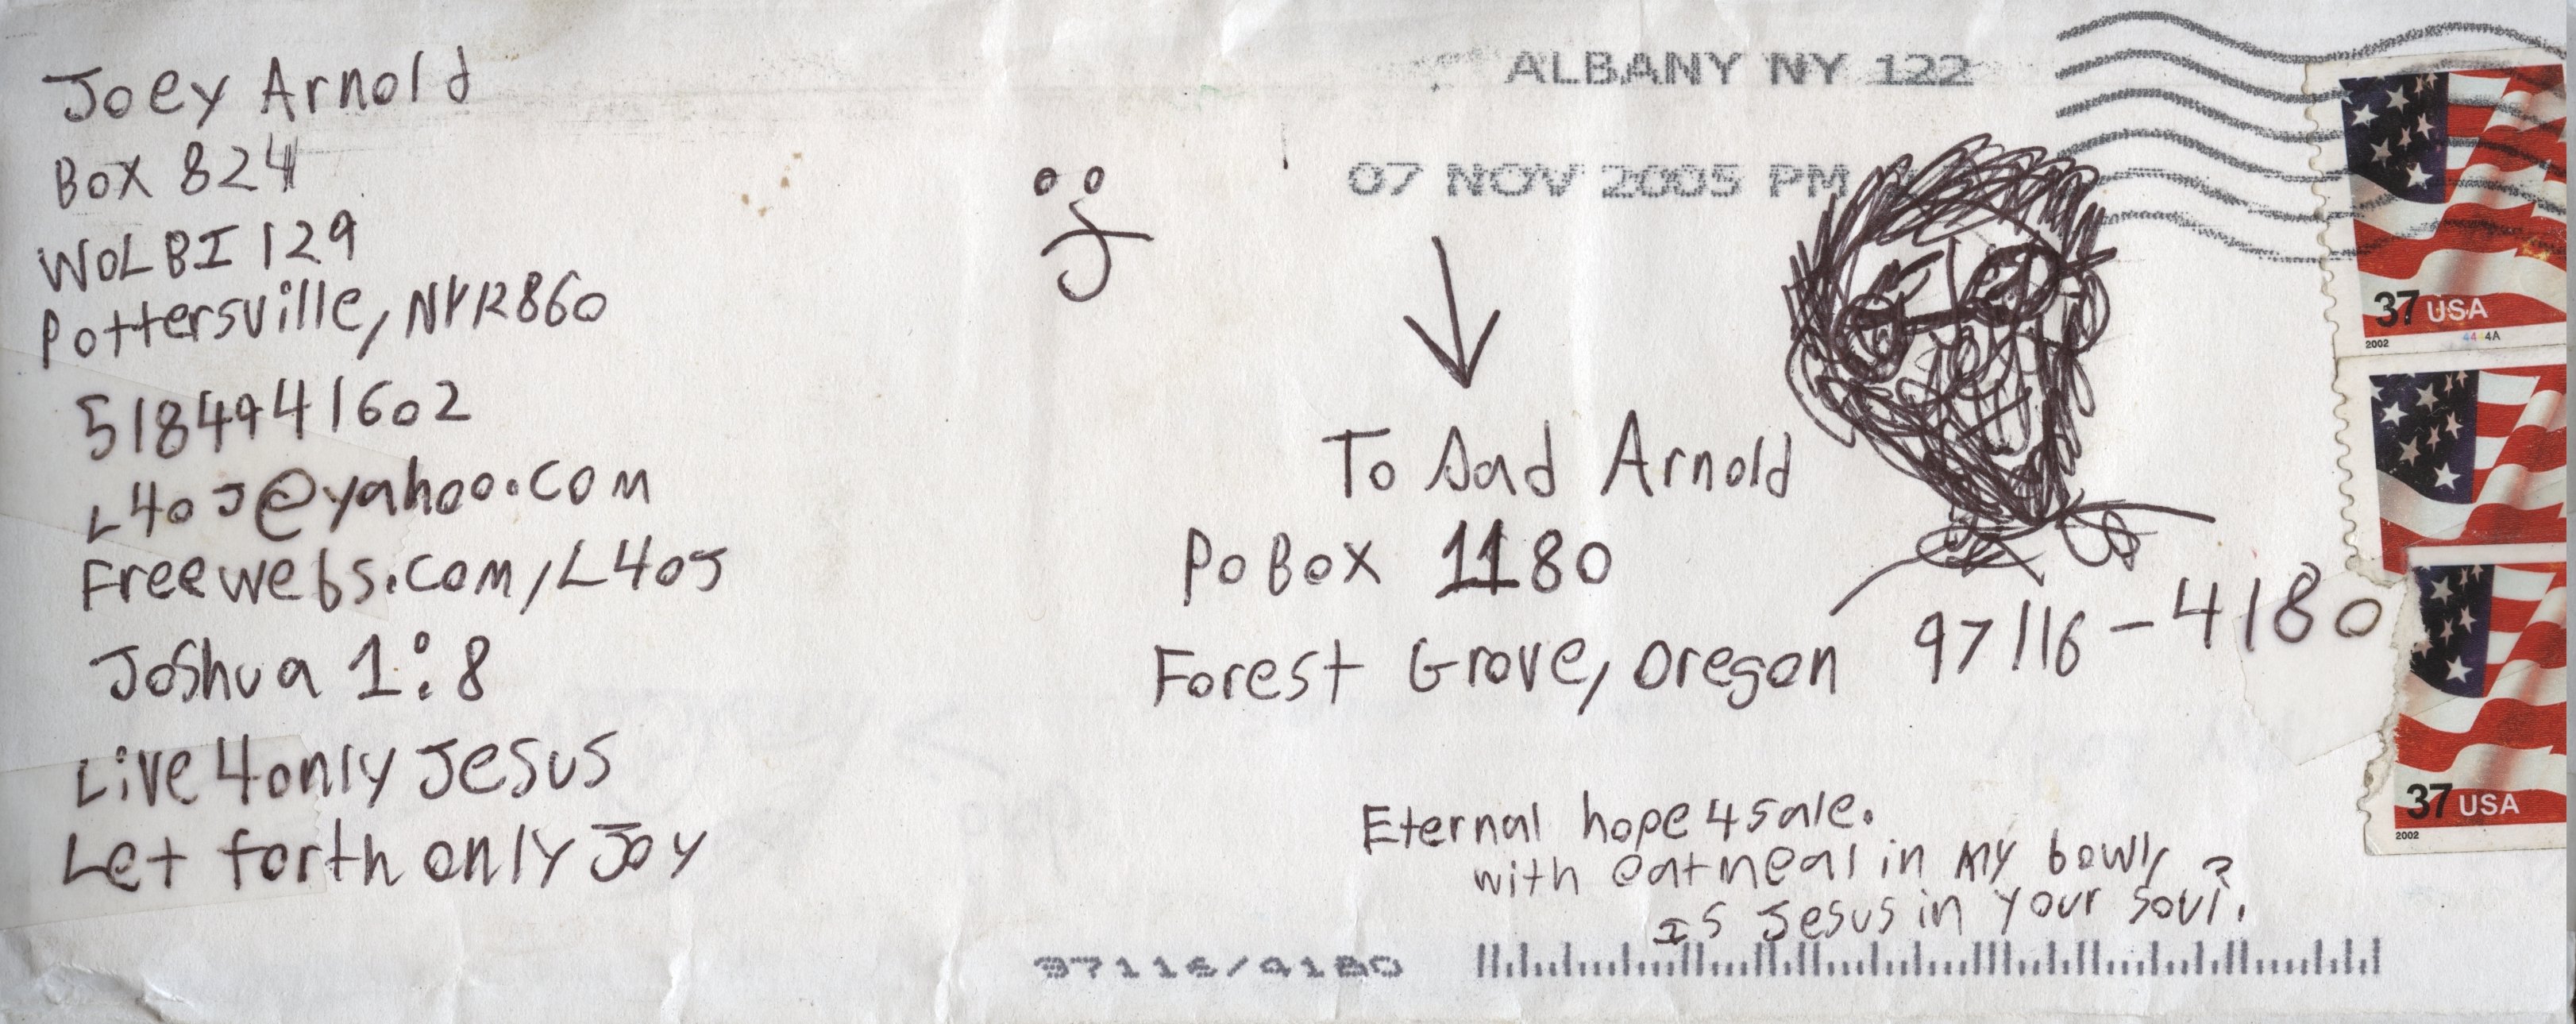 Joey Arnold
Box 824
WOLBI 129
Pottersville, NY 12860
5184941602
L4oJ@yahoo.com
Freewebs.com/L4oJ
Joshua 1:8
Live 4only Jesus
Let forth only Joy
ALBANY NY 122
07 NOV 2005 PM
To Dad Arnold
Po Box 1180
Forest Grove, Oregon 97116-4180
Eternal hope 4 sale.
with oatmeal in my bowl,
Is Jesus in your soul?
97116/4180
37 USA
2002
37 USA
2002